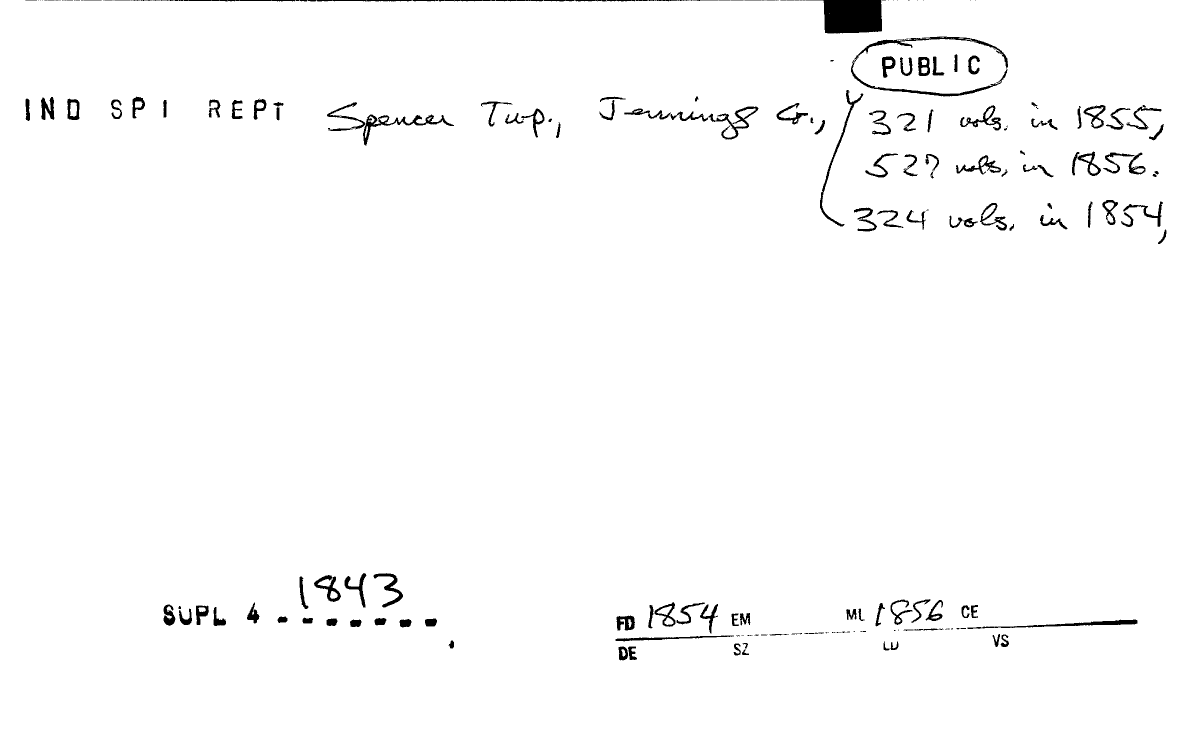 PUBLIC
IND SPI REPT Spencer Twp., Jennings Co., 321 vols. in 1855,
527 vols, in 1856.
324 vols, in 1854,
1843
SUPL 4 - - - - - - -
FD 1854 EM ML 1856 CE
DE SZ LD VS